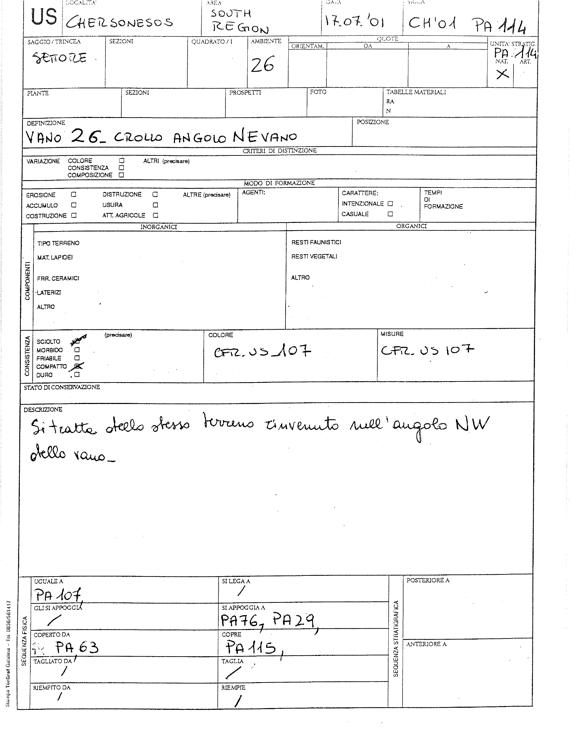 US
LOCALITA'
CHERSONESOS
AREA
SOUTH
REGION
DATA
17.07.'01
SIGLA
CH'01 PA 114
SAGGIO / TRINCEA
SETTORE
SEZIONI
QUADRATO / I
AMBIENTE
26
QUOTE
ORIENTAM.
DA
A
UNITA' STRATIG.
PA 114
NAT.
ART.
X
PIANTE
SEZIONI
PROSPETTI
FOTO
TABELLE MATERIALI
RA
N
DEFINIZIONE
VANO 26_ CROLLO ANGOLO NE VANO
POSIZIONE
CRITERI DI DISTINZIONE
VARIAZIONE
COLORE
CONSISTENZA
COMPOSIZIONE
ALTRI (precisare)
MODO DI FORMAZIONE
EROSIONE
ACCUMULO
COSTRUZIONE
DISTRUZIONE
USURA
ATT. AGRICOLE
ALTRE (precisare)
AGENTI:
CARATTERE:
INTENZIONALE
CASUALE
TEMPI
DI
FORMAZIONE
COMPONENTI
INORGANICI
TIPO TERRENO
MAT. LAPIDEI
FRR. CERAMICI
LATERIZI
ALTRO
ORGANICI
RESTI FAUNISTICI
RESTI VEGETALI
ALTRO
CONSISTENZA
SCIOLTO
MORBIDO
FRIABILE
COMPATTO
DURO
(precisare)
COLORE
CFR. US_107
MISURE
CFR. US 107
STATO DI CONSERVAZIONE
DESCRIZIONE
Si tratta dello stesso terreno rinvenuto nell'angolo NW
dello vano_
SEQUENZA FISICA
UGUALE A
PA 107,
SI LEGA A
/
GLI SI APPOGGIA
/
SI APPOGGIA A
PA76, PA29,
COPERTO DA
PA 63
COPRE
PA 115,
TAGLIATO DA
/
TAGLIA
/
RIEMPITO DA
/
RIEMPIE
/
SEQUENZA STRATIGRAFICA
POSTERIORE A
ANTERIORE A